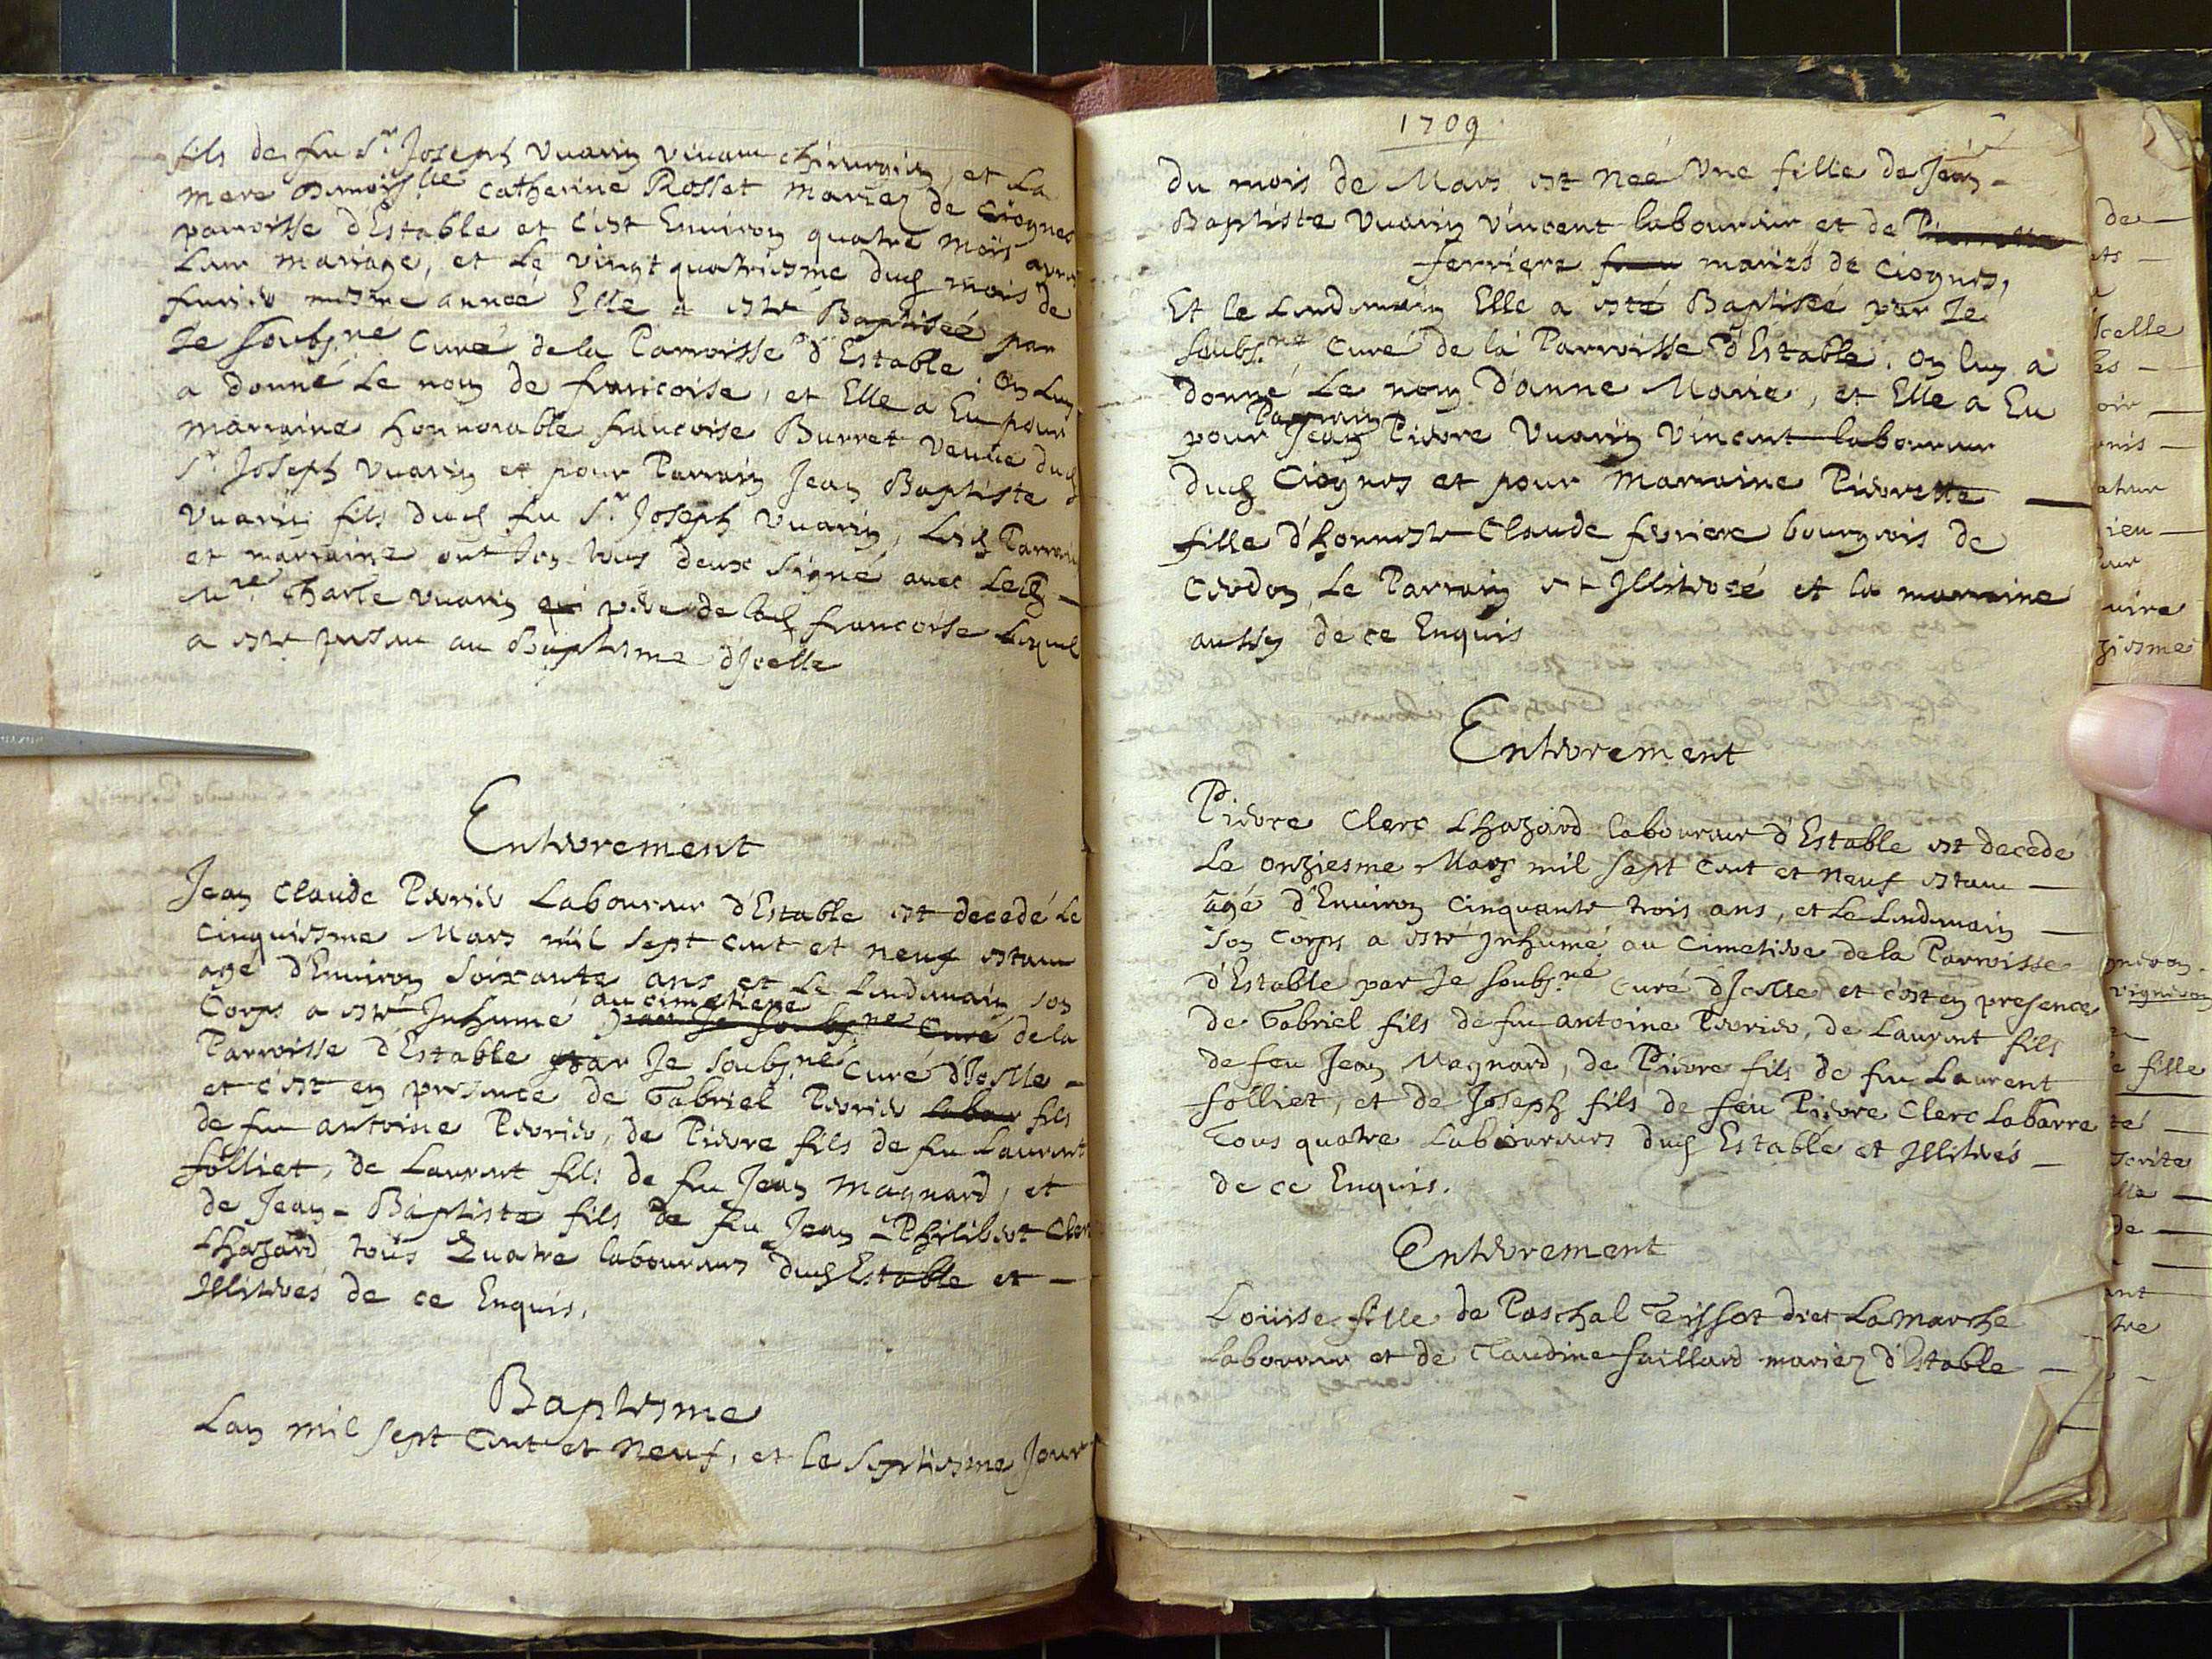 fils de feu Sr Joseph Vuarin vivant chirurgien, et La
mere Damoislle Catherine Rosset mariez de Ciognes
parroisse d'Estable et c'est Environ quatre mois apres
Leur mariage, et Le vingt quatriesme dud mois de
fevrier mesme année Elle a esté Baptiseé par
Je soubsne Curé dela Parroisse d'Estable. On Luy
a donné Le nom de francoise, et Elle a Eu pour
marraine honnorable francoise Burret veuve dud
Sr Joseph Vuarin et pour Parrain Jean Baptiste
Vuarin fils dud feu Sr Joseph Vuarin, Lesd Parrain
et marraine ont tous deux signé avec Led
Mre Charle Vuarin pere de lad francoise Lequel
a esté present au Baptesme d'Jcelle
Enterrement
Jean Claude Perrier Laboureur d'Estable est decedé Le
cinquiesme Mars mil sept cent et neuf estant
agé d'Environ soixante ans et Le Lendemain son
Corps a esté Jnhumé au cimetiere par Je soubsne Curé dela
Parroisse d'Estable par Je soubsne Curé d'Jcelle
et c'est en presence de Gabriel Perrier labour fils
de feu antoine Perrier, de Pierre fils de feu Laurent
folliet, de Laurent fils de feu Jean Magnard, et
de Jean-Baptiste fils de feu Jean-Philibert Clerc
Lhazard tous Quatre laboureurs dud Estable et
Jlliterés de ce Enquis.
Baptesme
Lan mil sept Cent et Neuf, et le septiesme Jour
1709
du mois de Mars est Neé Une fille de Jean-
Baptiste Vuarin Vincent laboureur et de Pierrette
ferriere feu mariés de Ciognes,
Et le Lendemain Elle a esté Baptiseé par Je
soubs.ne Curé de la Parroisse d'Estable. On luy a
donné Le nom d'anne Marie, et Elle a Eu
pour Parrain Jean Pierre Vuarin Vincent laboureur
dud Ciognes et pour Marraine Pierrette
fille d'honneste Claude ferriere bourgeois de
Cerdon, Le Parrain est Jlliteré et la marraine
aussy de ce Enquis
Enterrement
Pierre Clerc Lhazard laboureur d'Estable est decedé
Le onziesme Mars mil sept Cent et Neuf estant
agé d'Environ Cinquante trois ans, et Le Lendemain
son Corps a esté Jnhumé au Cimetiere dela Parroisse
d'Estable par Je soubsné Curé d'Jcelle et c'est en presence
de Gabriel fils de feu antoine Perrier, de Laurent fils
de feu Jean Magnard, de Pierre fils de feu Laurent
folliet, et de Joseph fils de feu Pierre Clerc Labarre
Tous quatre Laboureurs dud Estable et Jlliterés
de ce Enquis.
Enterrement
Loüise fille de Paschal Teissot dict La marche
Laboureur et de Claudine faillard mariez d'Estable
de
Jcelle
oir
ateur
ieu
uire
ziesme
e fille
té
de